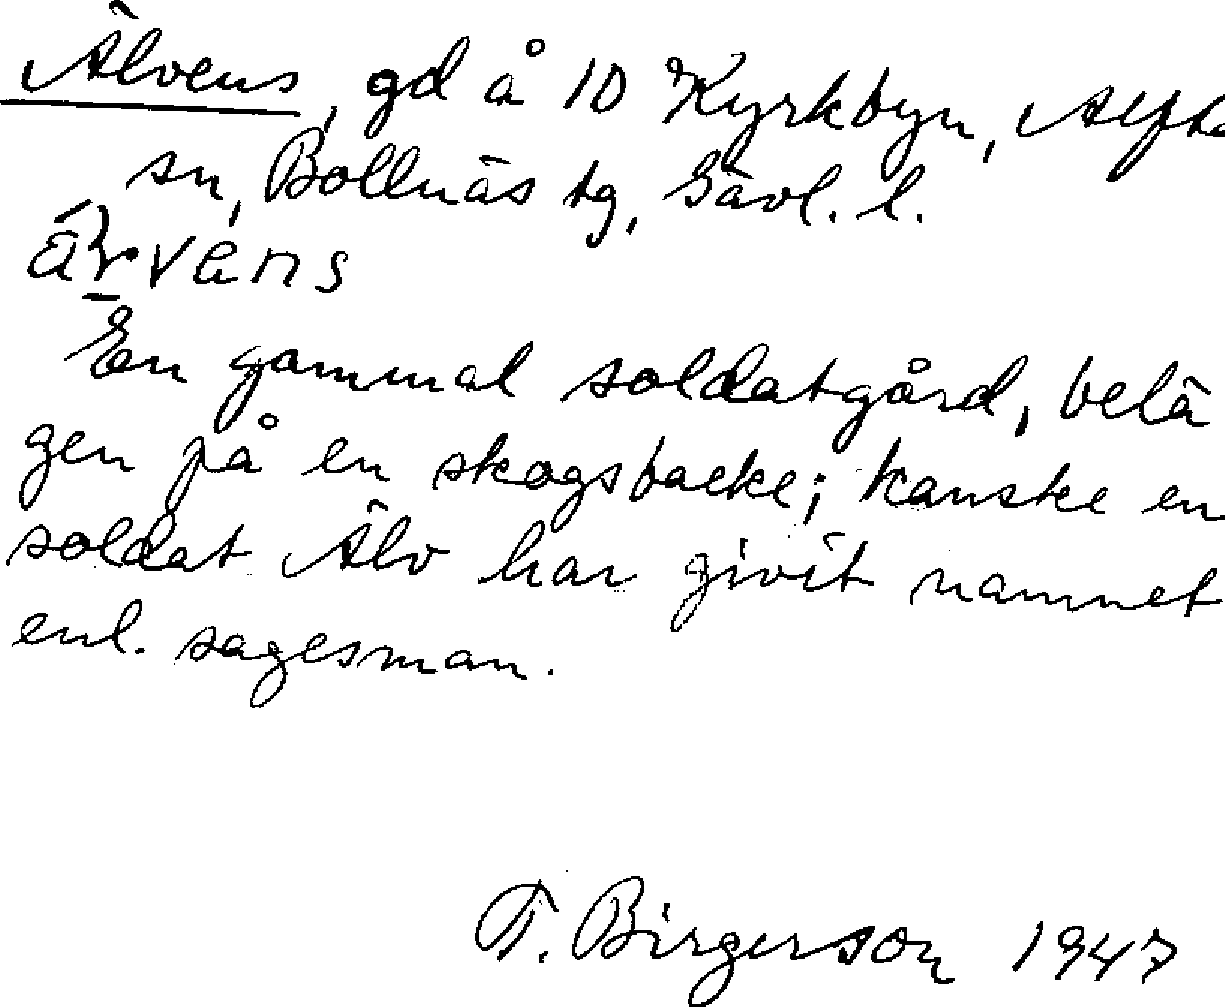 Älvens, gd å 10 Kyrkbyn, Alfta
sn, Bollnäs tg, Gävl. l.
En gammal soldatgård, belä
gen på en skogsbacke; kanske en
soldat Älv har givit namnet
enl. sagesman.
T. Birgerson 1947